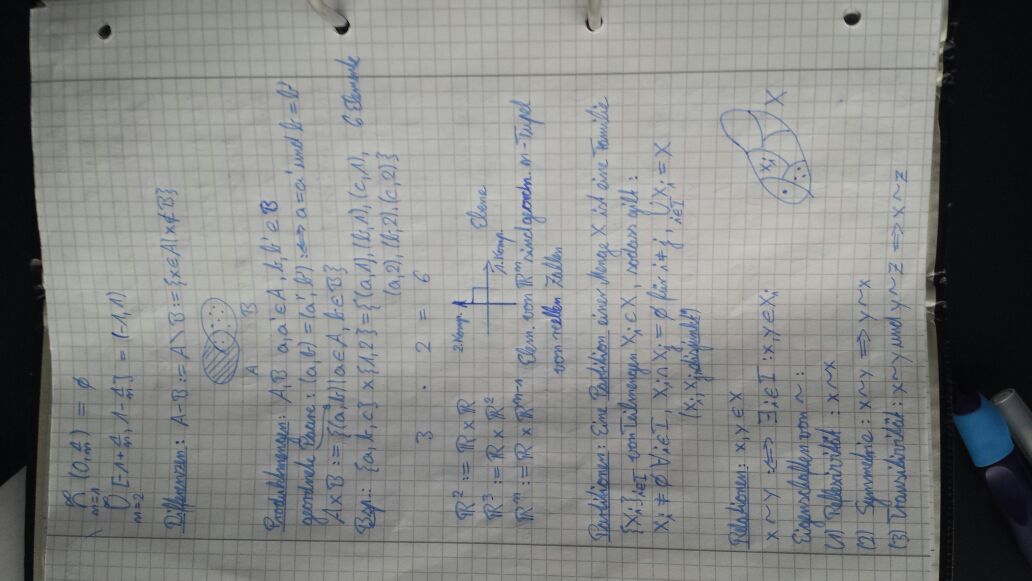 ∞⋂n=1 (0, 1/n) = ∅
∞⋃n=2 [-1+1/n, 1-1/n] = (-1,1)
Differenzen: A-B := A\B := {x∈A | x∉B}
A B
Produktmengen: A,B a,a'∈A, b,b'∈B
geordnete Paare: (a,b) = (a',b') :⟺ a=a' und b=b'
A×B := {(a,b) | a∈A, b∈B}
Bsp.: {a,b,c} × {1,2} = {(a,1),(b,1),(c,1),
(a,2),(b,2),(c,2)} 6 Elemente
3 · 2 = 6
ℝ² := ℝ×ℝ 2. Komp. Ebene
ℝ³ := ℝ×ℝ² 1. Komp.
ℝⁿ := ℝ×ℝⁿ⁻¹ Elem. von ℝⁿ sind geordn. n-Tupel
von reellen Zahlen
Partitionen: Eine Partition einer Menge X ist eine Familie
{Xi}i∈I von Teilmengen Xi∈X, sodass gilt:
Xi ≠ ∅ ∀i∈I, Xi∩Xj = ∅ für i≠j, ⋃i∈I Xi = X
(Xi, Xj „disjunkt“)
Relationen: x,y∈X
x~y ⟺ ∃i∈I : x,y∈Xi
Xi X
Eigenschaften von ~:
(1) Reflexivität: x~x
(2) Symmetrie: x~y ⟹ y~x
(3) Transitivität: x~y und y~z ⟹ x~z